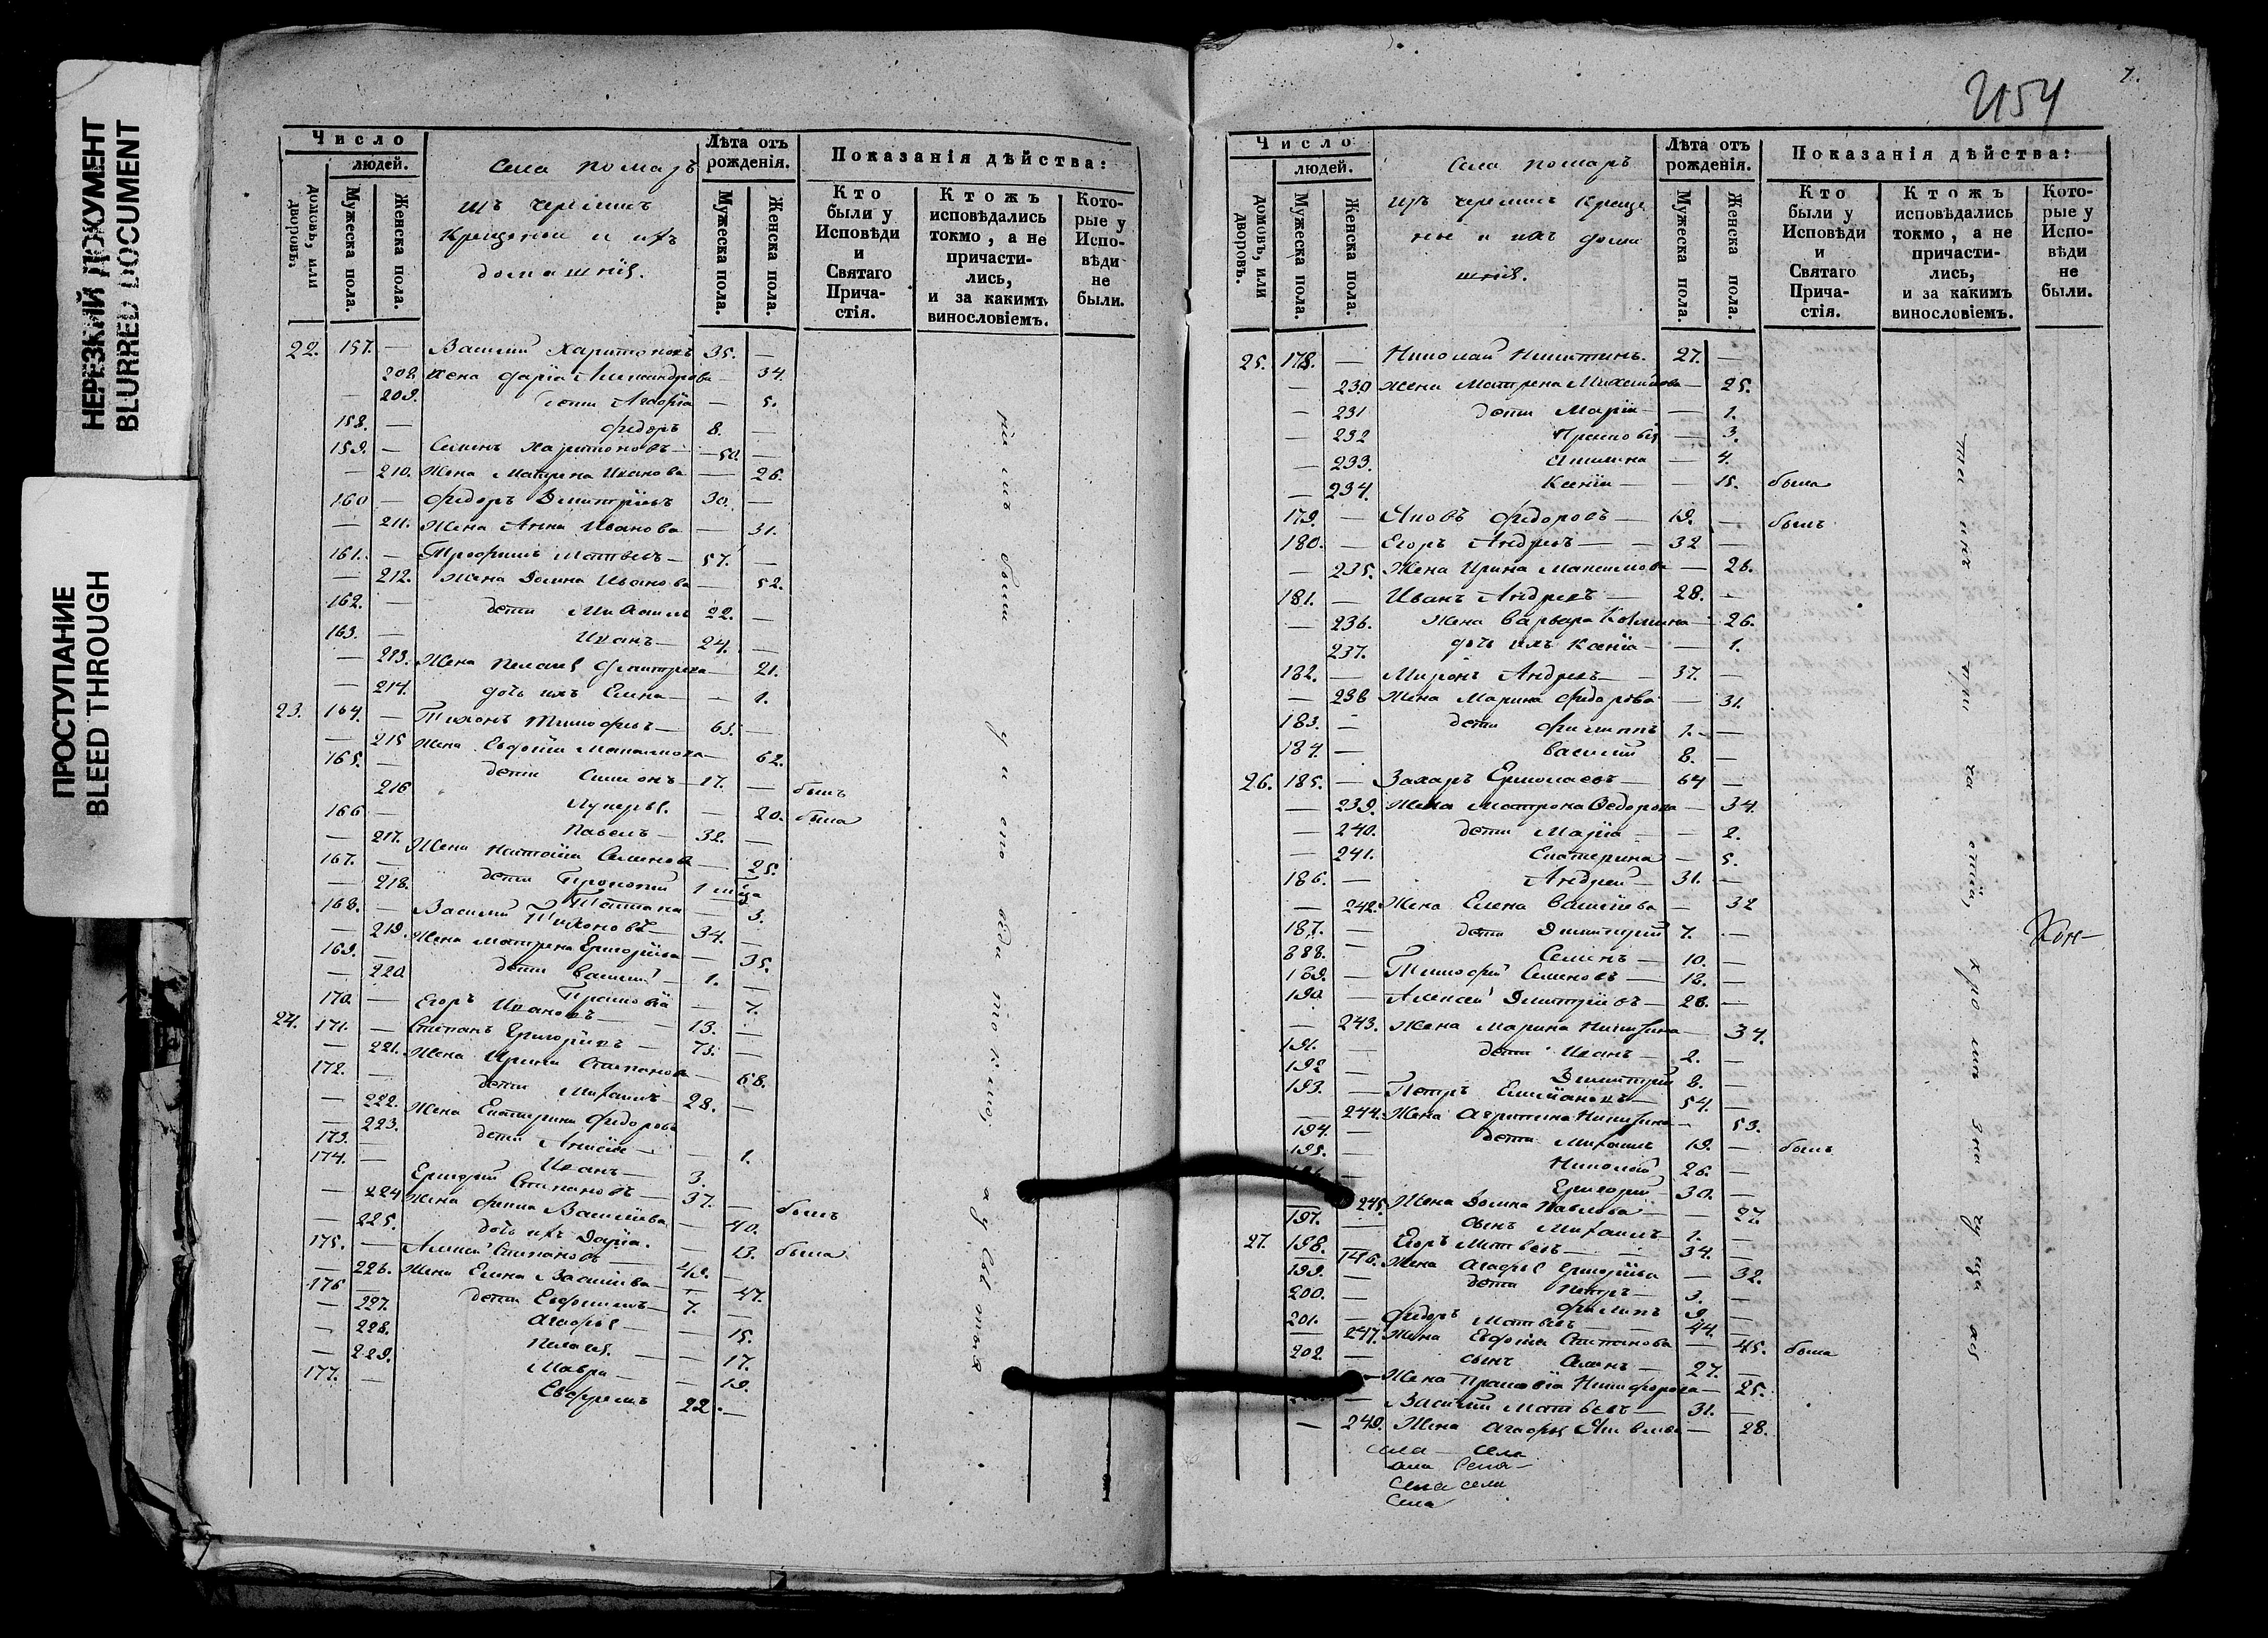 НЕРЕЗКИЙ ДОКУМЕНТ
BLURRED DOCUMENT
ПРОСТУПАНИЕ
BLEED THROUGH
Число
людей.
домовъ, или дворовъ.
Мужеска пола.
Женска пола.
Села Помаръ
изъ черемисъ
крещеной и ихъ
домашнія.
Лѣта отъ рожденія.
Мужеска пола.
Женска пола.
Показанія дѣйства:
Кто были у Исповѣди и Святаго Прича- стія.
Ктожъ исповѣдались токмо, а не причасти- лись, и за какимъ винословіемъ.
Кото- рые у Испо- вѣди не были.
22. 157. — Василий Харитоновъ 35. —
208. Жена Дарія Александрова — 34.
— 209. дети Агафія — 5.
158. — Федоръ 8. —
159. — Семенъ Харитоновъ — 50. —
— 210. Жена Матрена Иванова — 26.
160 — Федоръ Димитріевъ 30. —
— 211. Жена Анна Иванова — 31.
161. — Трофимъ Матвеевъ — 57. —
— 212. Жена Домна Иванова — 52.
162. — дети Михаилъ 22. —
163. — Иванъ — 24. —
— 213. Жена Пелагея Дмитриева — 21.
— 214. дочь ихъ Елена — — 1.
23. 164. — Тихонъ Тимофеевъ — 65. —
— 215 Жена Евфимія — 62.
165. — дети Симеонъ — 17. — былъ
216 Лукерья — 20. была
166 — Павелъ — 32. —
— 217. Жена Наталія Семенова — 25.
167. — дети Прокопий 1
— 218. Татіана — 3.
168. — Василий Тихоновъ — 34. —
— 219. Жена Матрена Григорьева — 35.
169. — дети Василий — 1. —
— 220. Прасковія — 7.
170. — Егоръ Ивановъ — 13. —
24. 171. — Степанъ Григорьевъ — 73. —
— 221. Жена Ирина Степанова — 68.
172. — дети Михаилъ — 28. —
— 222. Жена Екатерина Федорова
— 223. дети Анисія — — 1.
173. — Иванъ — 3.
174. — Григорий Степановъ — 37. — былъ
— 224 Жена Фекла Васильева — 40.
— 225. дочь ихъ Дарія. — 13. была
175. — Алексей Степановъ — 49. —
— 226. Жена Елена Васильева — 47.
176 — дети Евфимъ — 7. —
— 227. Агафья — — 15.
— 228. Пелагея. — — 17.
— 229. Мавра — — 19.
177. — Евфремъ 22. —
2154
7.
Число
людей.
домовъ, или дворовъ.
Мужеска пола.
Женска пола.
Села Помаръ
изъ черемисъ креще
ные и ихъ дома
шнія.
Лѣта отъ рожденія.
Мужеска пола.
Женска пола.
Показанія дѣйства:
Кто были у Исповѣди и Святаго Прича- стія.
Ктожъ исповѣдались токмо, а не причасти- лись, и за какимъ винословіемъ.
Кото- рые у Испо- вѣди не были.
25. 178. — Николай Никитинъ. 27. —
— 230 Жена Матрена Михайлова — 25.
— 231 дети Марія — — 1.
— 232 Прасковія — 3.
— 233. Акилина — 4.
— 234. Ксенія — — 15. была
179. — Яковъ Федоровъ — 19. — былъ
180. — Егоръ Андреевъ — — 32 —
— 235. Жена Ирина Максимова — 26.
181. — Иванъ Андреевъ — 28. —
— 236. Жена Варвара Козмина — 26.
237. дочь ихъ Ксенія — — 1.
182. — Миронъ Андреевъ — 37. —
— 238 Жена Марина Федорова — 31.
183. — дети Филиппъ 1. —
184 — Василий 8. —
26. 185. — Захаръ Ермолаевъ — 64 —
— 239. Жена Матрона Федорова — 34.
— 240. дети Марія — — 2.
— 241. Екатерина — 5.
186. — Андрей — 31. —
— 242. Жена Елена Васильева — 32
187. — дети Димитрий 7. —
188. — Семенъ — 10. —
189. — Тимофей Семеновъ — 18. —
190 — Алексей Димитріевъ — 28. —
— 243. Жена Марина Никитина — 34.
191. — дети Иванъ — 2. —
192 — Димитрий 8. —
193. — Петръ Емельяновъ — 54. —
— 244. Жена Агрипина Никитина — 53.
194. — дети Михаилъ 19. — былъ
195. — Николай 26. —
— Григорий — 30. —
— 245. Жена Домна Павлова — — 27.
197. — сынъ Михаилъ — 1. —
27. 198. — Егоръ Матвеевъ — 34. —
— 146. Жена Агафья Григорьева — 32.
199. — дети Петръ — 3. —
200. — Филипъ 9. —
201. — Федоръ Матвеевъ — 44. —
— 247. Жена Евфимія Степанова — 45. была
202. — сынъ Семенъ — 27. —
— Жена Прасковія Никифорова — 25.
— Василий Матвеевъ — 31. —
— 249. Жена Агафья Яковлева — 28.
села — села
Села села
Села
Кон—